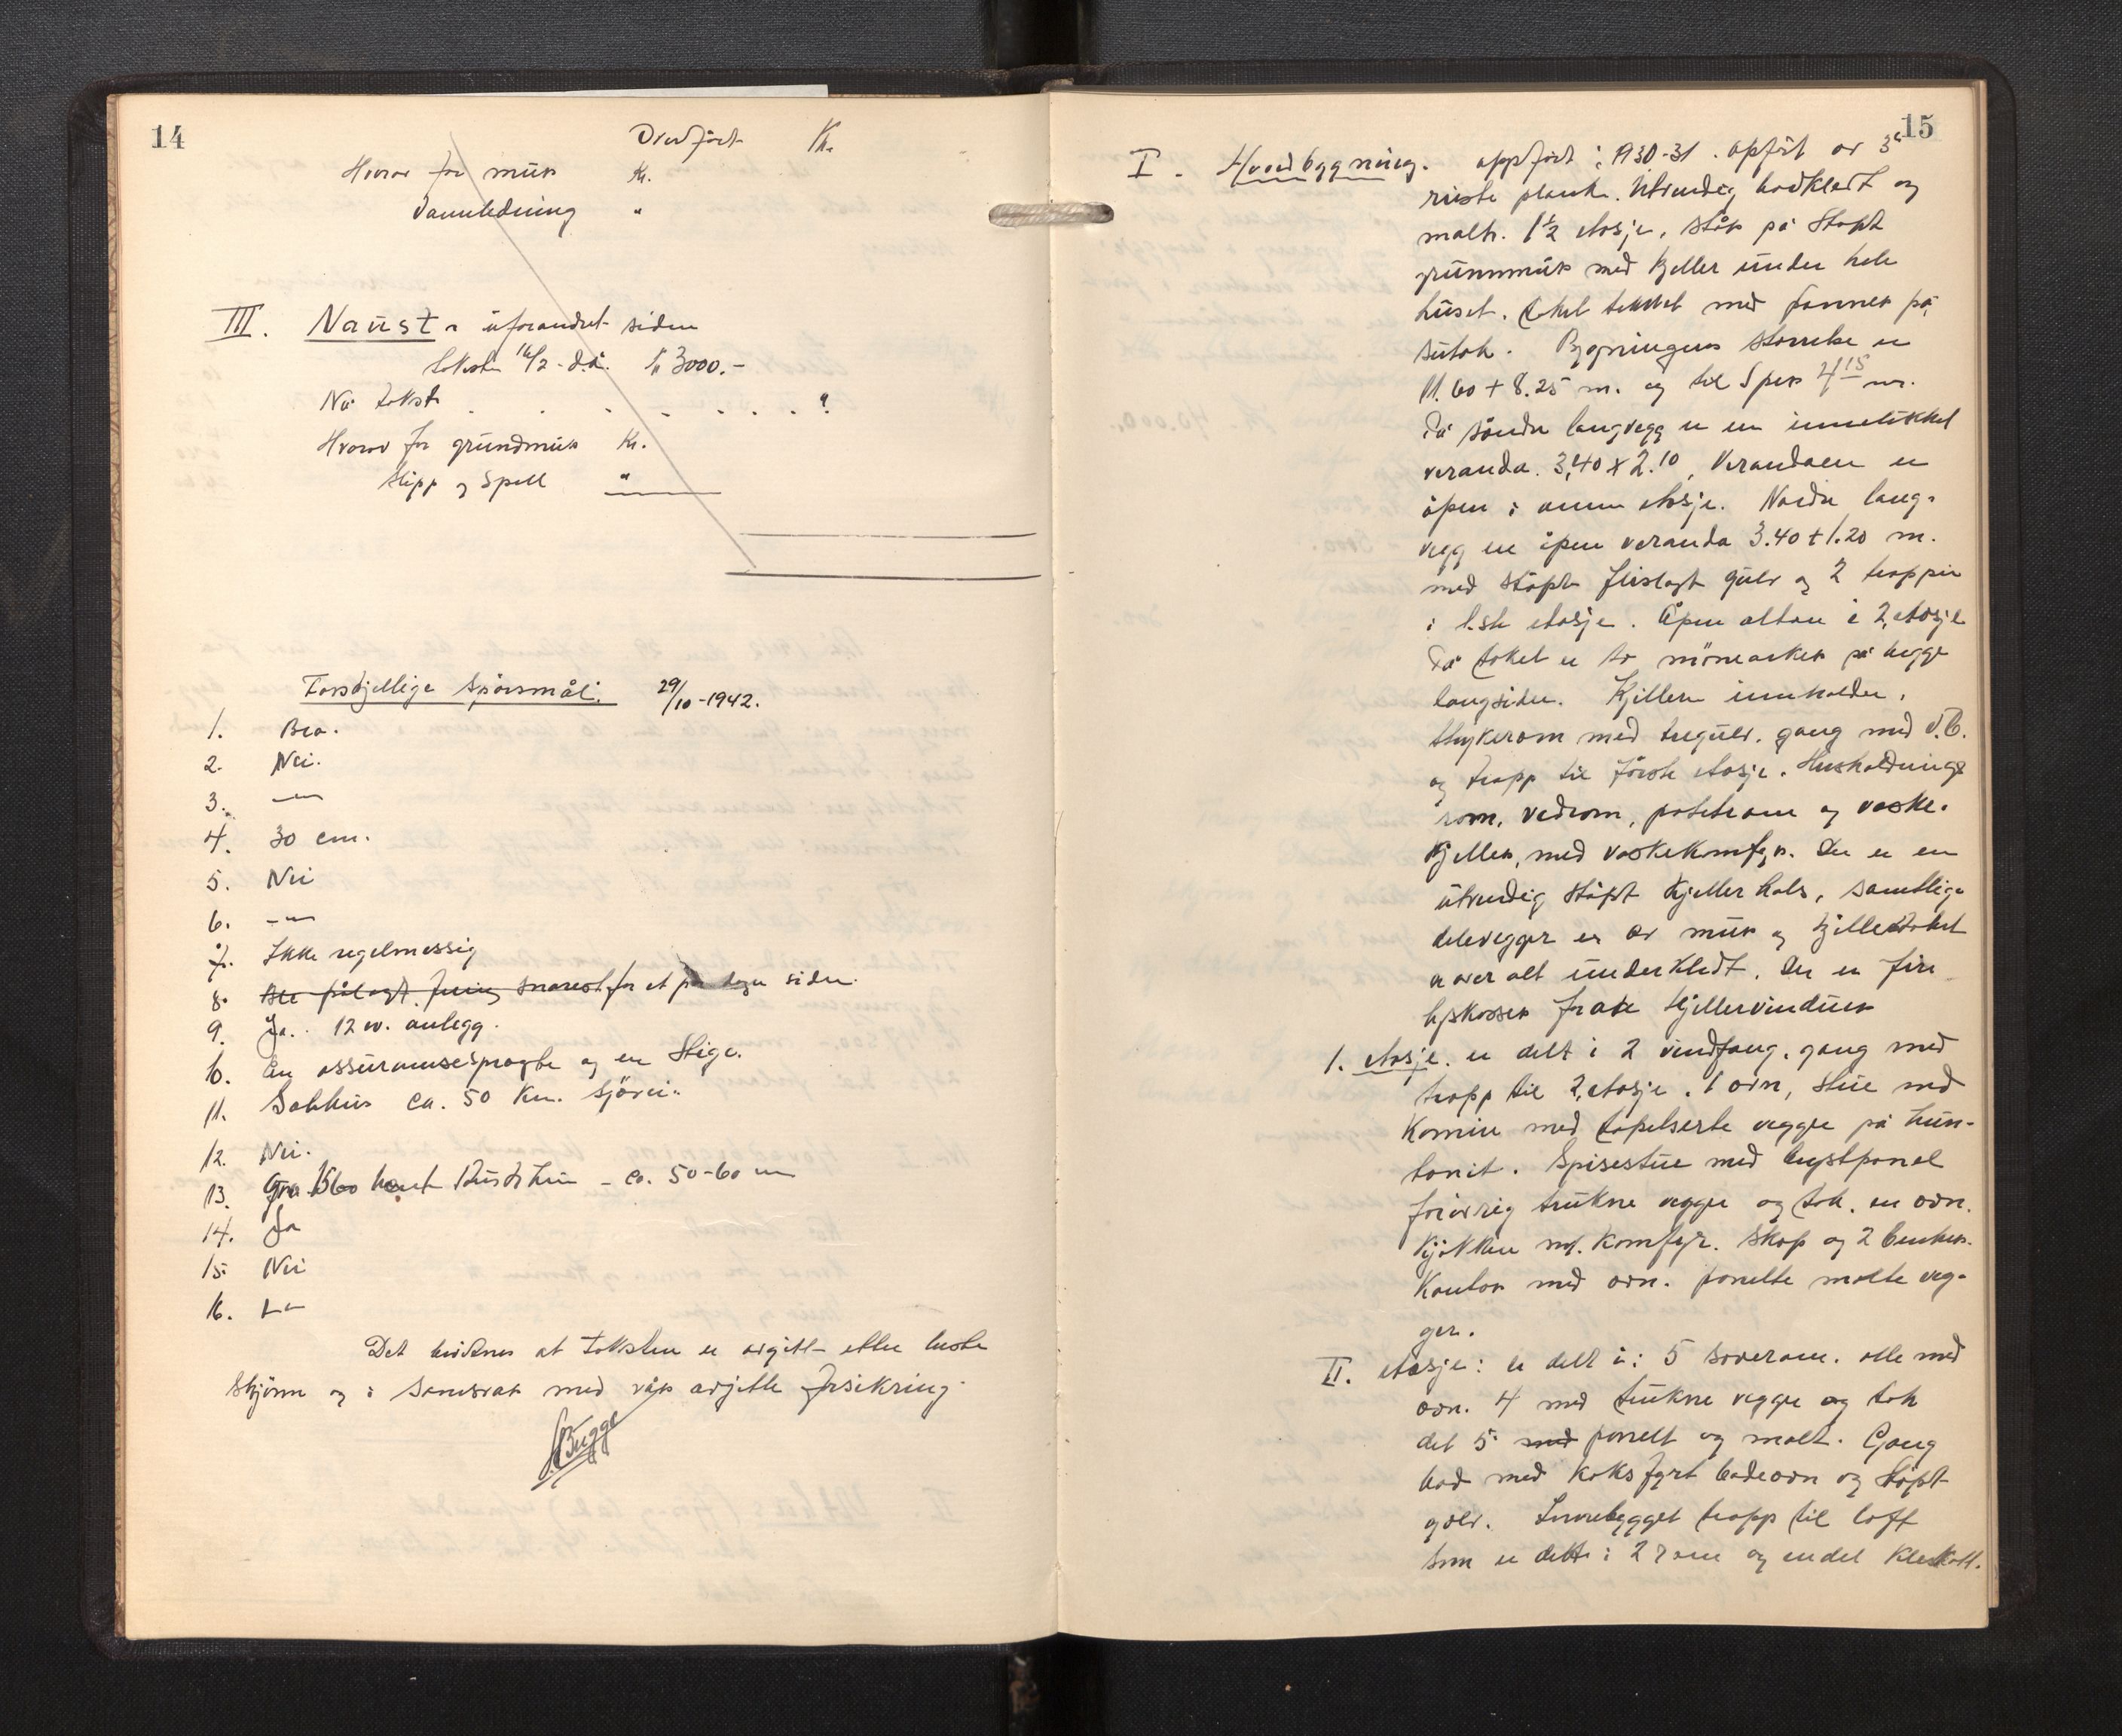 14
Overført Kr.
Herav for mur Kr.
Vannledning "
III. Naust - uforandret siden
takstn 16/2 - d.å. Kr 3000.-
Nu takst . . . . . . . ?
Herav for grundmur Kr.
Slipp og Spell "
Forskjellige Spørsmål. 29/10-1942.
1. Bra.
2. Nei.
3. —"—
4. 30 cm.
5. Nei
6. —"—
7. Ikke regelmessig
8. Ble pålagt feiing snarest, for et par dager siden.
9. Ja. 12 v. anlegg.
10. En assuransesprøyte og en Stige.
11. ca. 50 Km. sjövei.
12. Nei.
13. ca. 50-60 m
14. Ja
15. Nei
16. —"—
Det bevidnes at taksten er avgitt efter beste
skjönn og i samsvar med vår avgitte forsikring.
Bugge
15
I. Hovedbygning. oppfört i 1930-31. opfört av 3"
plank. Utvendig bordkledt og
malt. 1½ etasje, står på Støpt
grunnmur med kjeller under hele
huset. Taket tekket med panner på
sutak. Bygningens størrelse er
11.60 + 8.25 m. og til Sper 4.15 m.
På söndre langvegg er en innelukket
veranda. 3.40 x 2.10, Verandaen er
åpen i annen etasje. Nordre lang-
vegg en åpen veranda 3.40 + 1.20 m.
med støpt flislagt gulv og 2 trapper
i 1.ste etasje. Åpen altan i 2. etasje
På taket er to på begge
langsider. Kjelleren inneholder,
strykerom med tregulv. gang med V.C.
og trapp til første etasje. Husholdnings
rom, vedrom, potetrom og vaske-
kjeller, med vaskekomfyr. Der er en
utvendig støpt kjellerhals, samtlige
delevegger er av mur og kjellertaket
er over alt underkledt. Der er fire
lyskasser foran kjellervinduer
1. etasje. er delt i 2 vindfang, gang med
trapp til 2. etasje. 1 ovn, stue med
Kamin med tapetserte vegger på hun-
tonit. Spisestue med brystpanel
forøvrig trukne vegger og tak, en ovn.
Kjökken m/. Komfyr. Skap og 2 benker.
Kontor med ovn. panelte malte veg-
ger.
II. etasje: er delt i: 5 soverom. alle med
ovn. 4 med trukne vegger og tak
det 5. med panelt og malt. Gang
bad med koksfyrt badeovn og støpt
golv. Innebygget trapp til loft
som er delt i 2 rom og endel Kleskott.